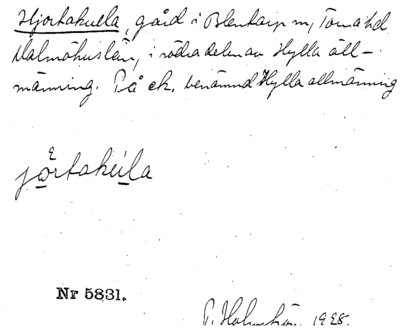 Hjortakulla, gård i Blentarp sn, Torna hd
Malmöhus län, i södra delen av Hylla all-
männing. På ek. benämnd Hylla allmänning
jårtakúla
Nr 5831.
1928.